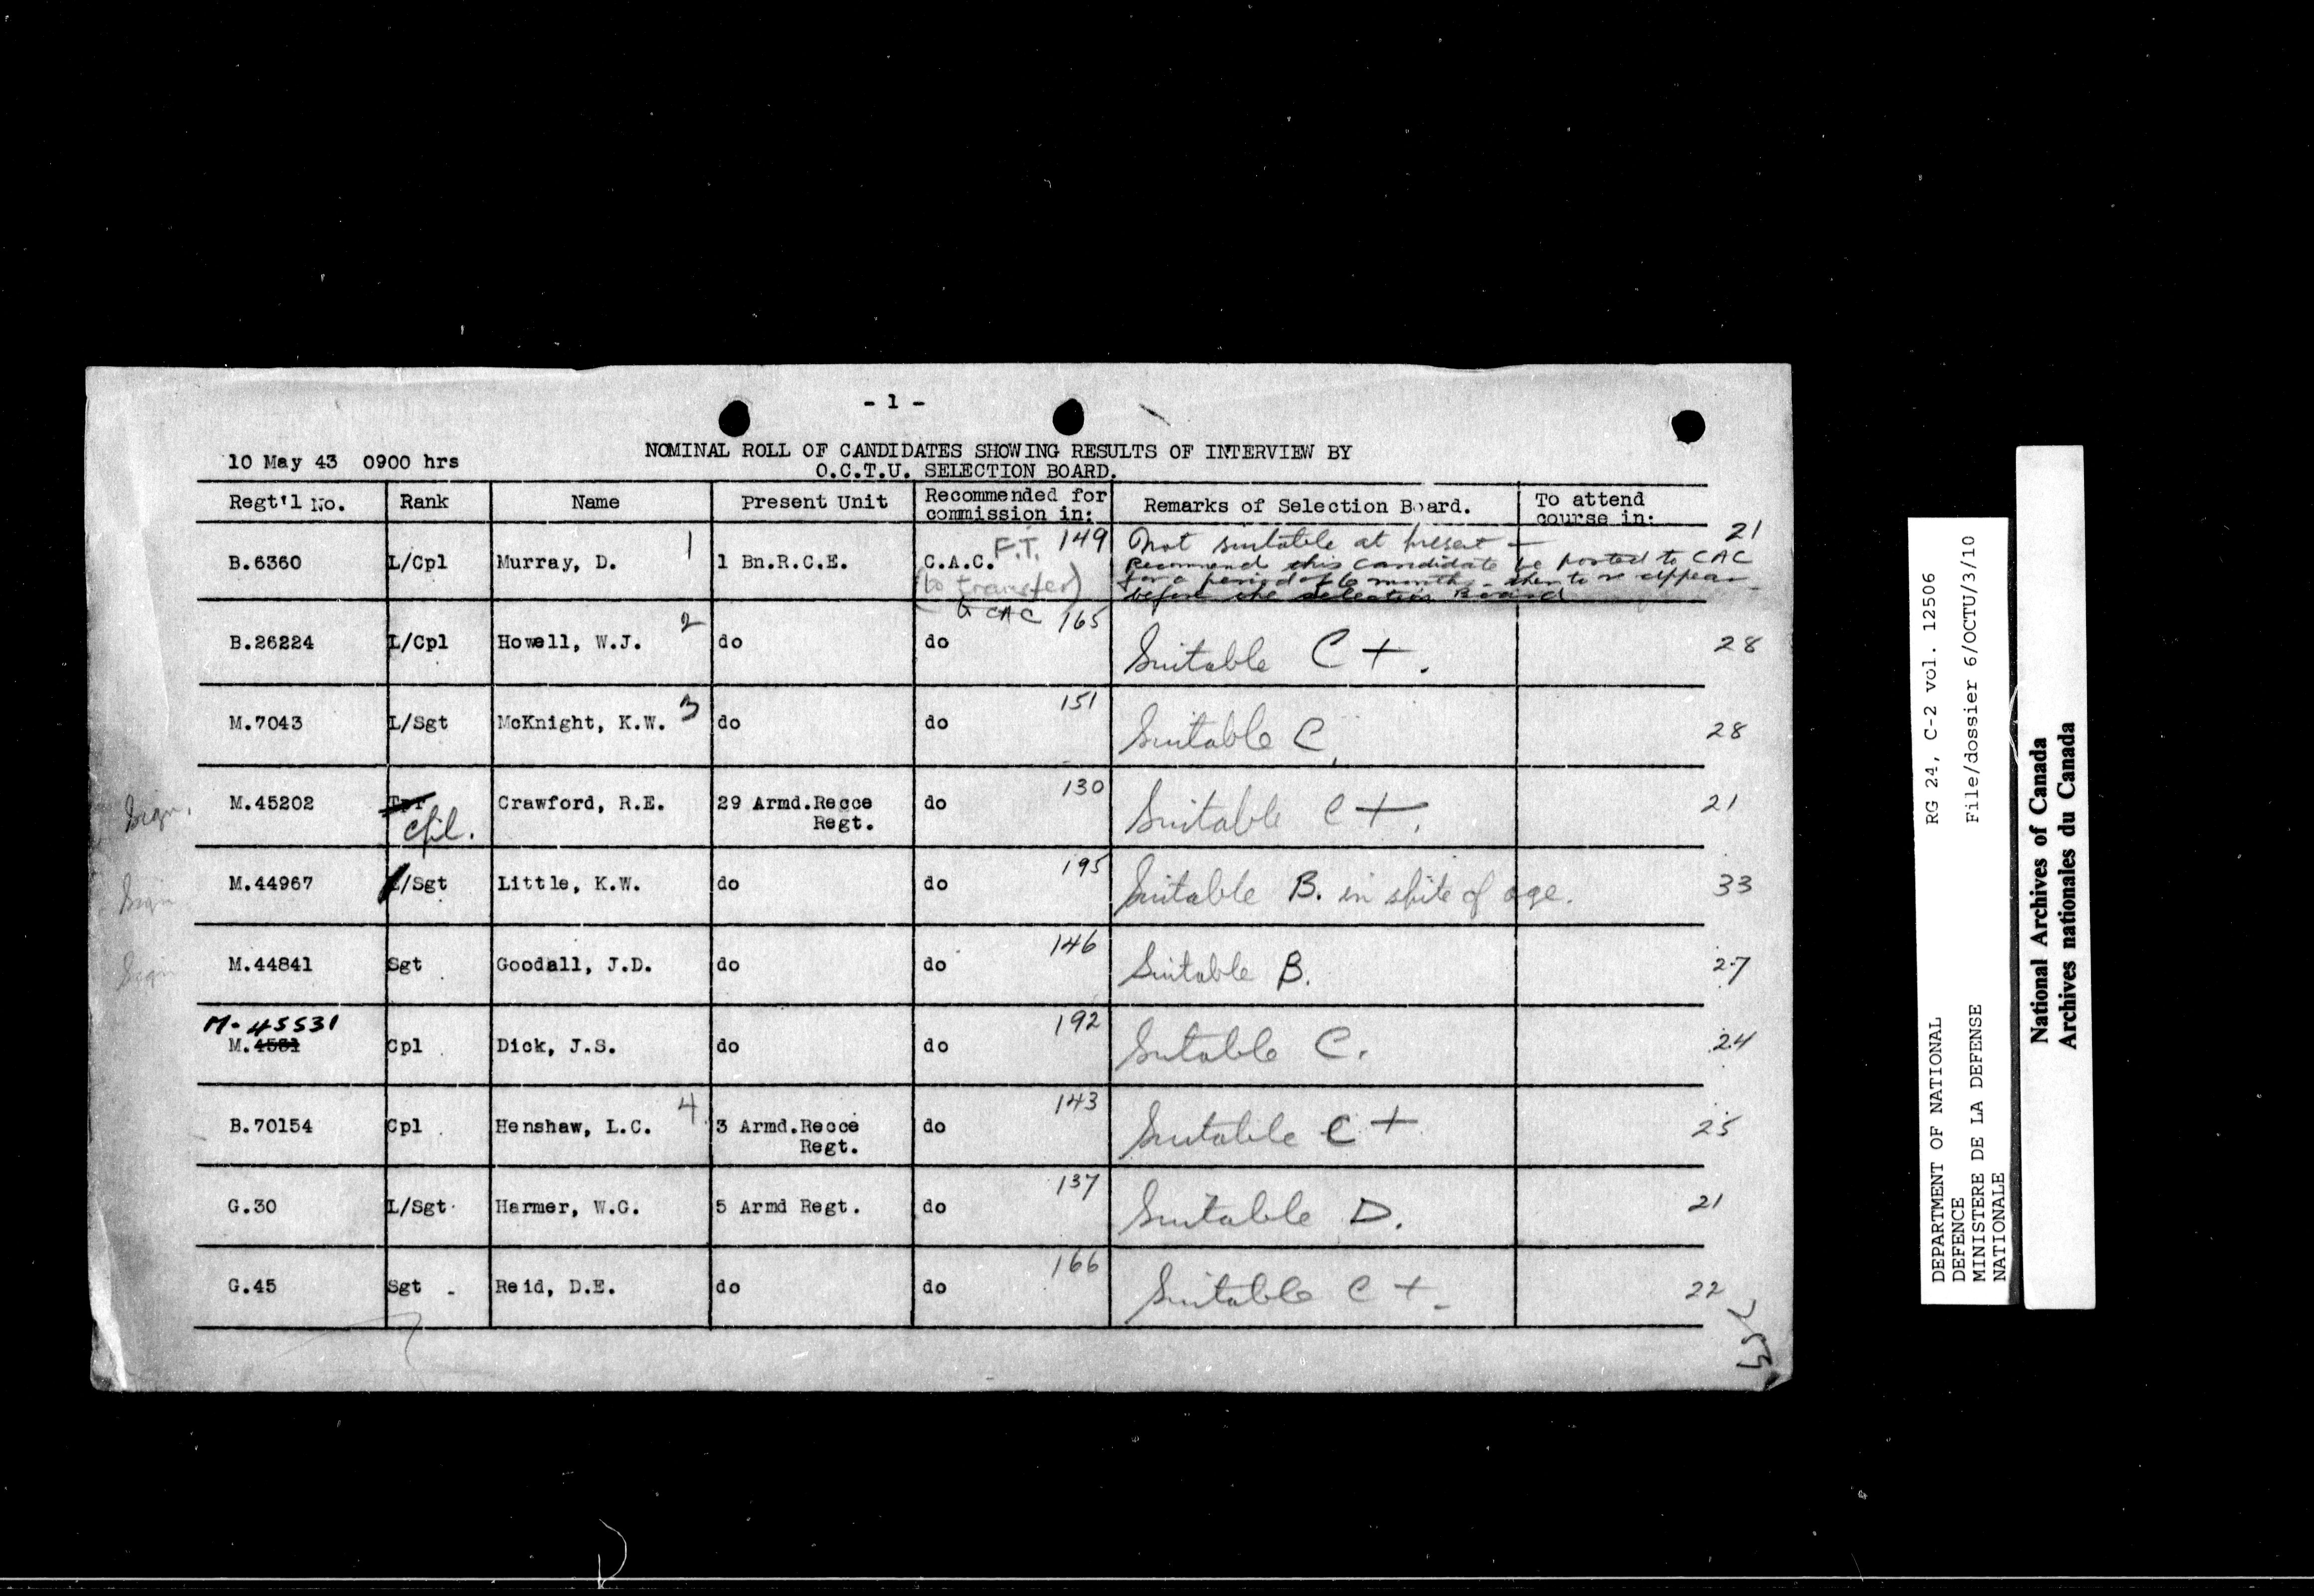 - 1 -
10 May 43 0900 hrs
NOMINAL ROLL OF CANDIDATES SHOWING RESULTS OF INTERVIEW BY
O.C.T.U. SELECTION BOARD.
Regt'l No. Rank Name Present Unit Recommended for commission in: Remarks of Selection Board. To attend course in:
B.6360 L/Cpl Murray, D. 1 1 Bn.R.C.E. C.A.C. F.T. 149 Not suitable at present - 21
(to transfer) Recommend this candidate be posted to CAC
to CAC for a period of 6 months - then to re appear
before the selection Board
B.26224 L/Cpl Howell, W.J. 2 do do 165 Suitable C+. 28
M.7043 L/Sgt McKnight, K.W. 3 do do 151 Suitable C. 28
M.45202 Tpr Crawford, R.E. 29 Armd.Recce do 130 Suitable C+. 21
Cpl. Regt.
M.44967 L/Sgt Little, K.W. do do 195 Suitable B. in spite of age. 33
M.44841 Sgt Goodall, J.D. do do 146 Suitable B. 27
M-45531
M.4531 Cpl Dick, J.S. do do 192 Suitable C. 24
B.70154 Cpl Henshaw, L.C. 4 3 Armd.Recce do 143 Suitable C+ 25
Regt.
G.30 L/Sgt Harmer, W.G. 5 Armd Regt. do 137 Suitable D. 21
G.45 Sgt - Reid, D.E. do do 166 Suitable C+. 22
DEPARTMENT OF NATIONAL RG 24, C-2 vol. 12506
DEFENCE
MINISTERE DE LA DEFENSE File/dossier 6/OCTU/3/10
NATIONALE
National Archives of Canada
Archives nationales du Canada